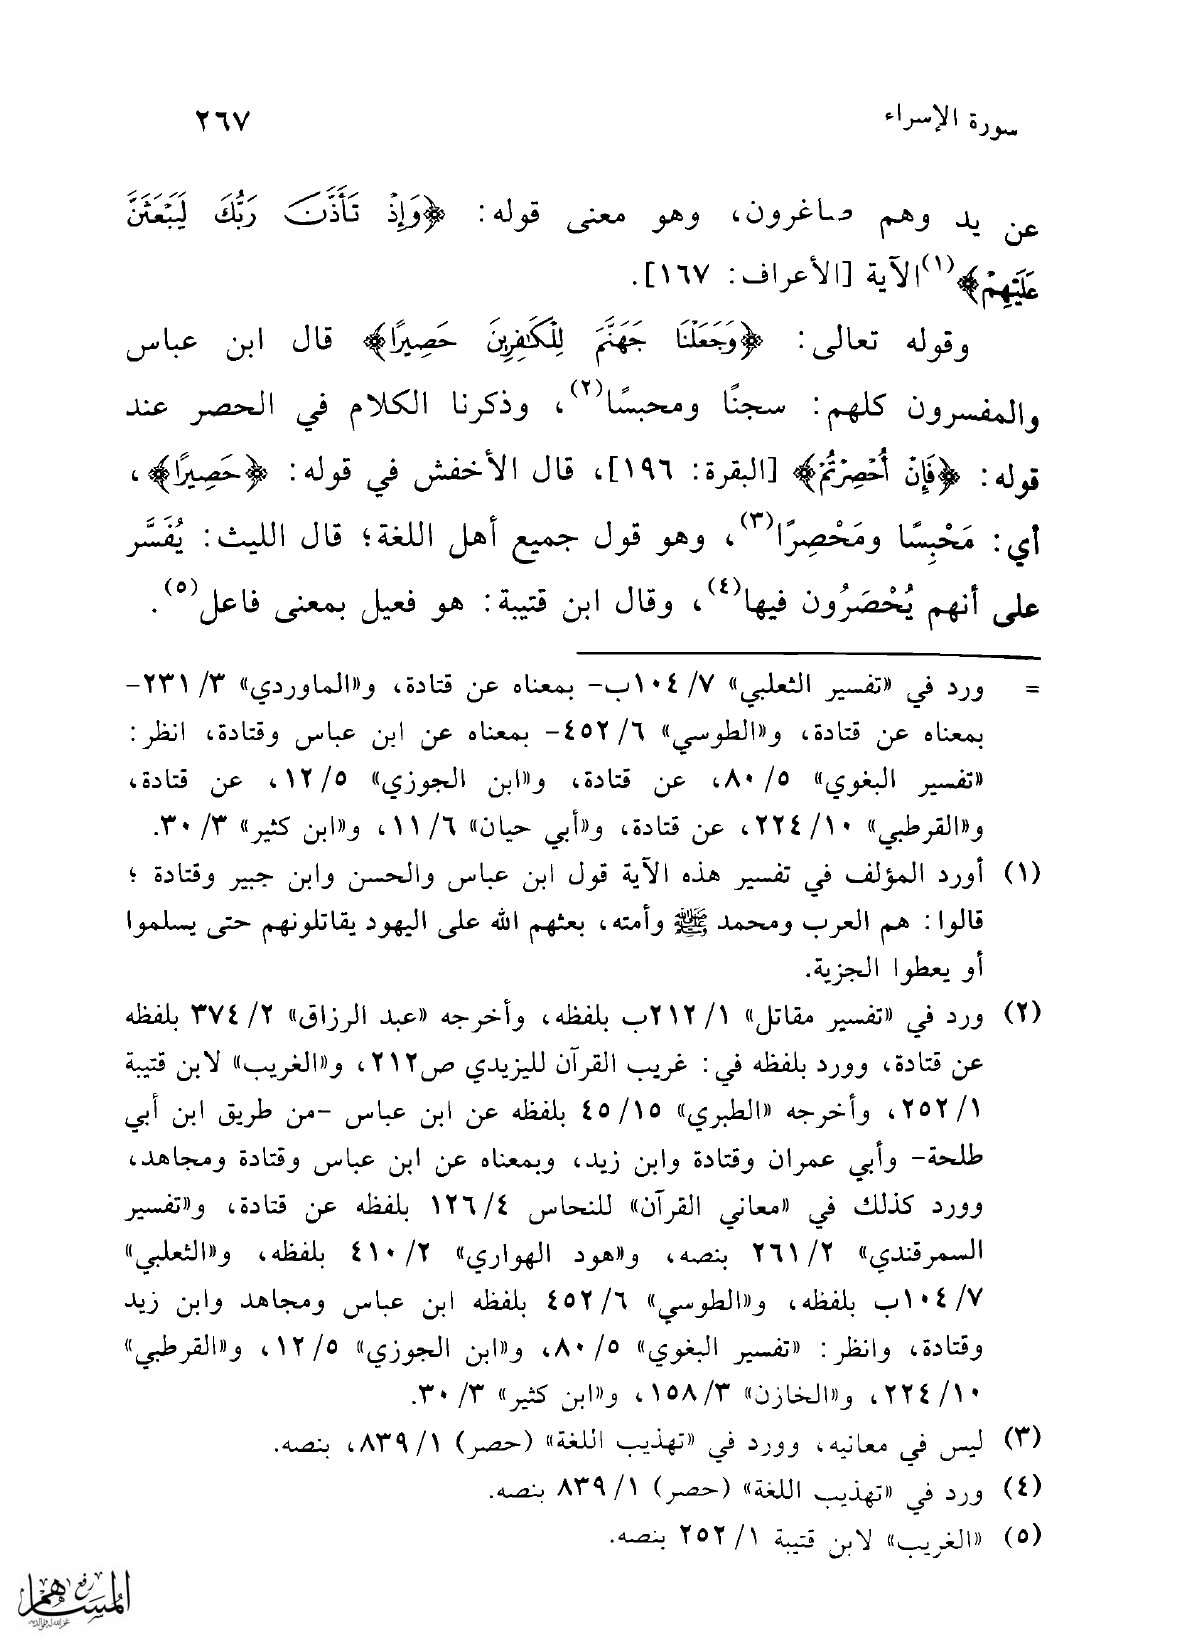 سورة الإسراء ٢٦٧
عن يد وهم صاغرون، وهو معنى قوله: ﴿وَإِذْ تَأَذَّنَ رَبُّكَ لَيَبْعَثَنَّ
عَلَيْهِمْ﴾(١) الآية [الأعراف: ١٦٧].
وقوله تعالى: ﴿وَجَعَلْنَا جَهَنَّمَ لِلْكَافِرِينَ حَصِيرًا﴾ قال ابن عباس
والمفسرون كلهم: سجنًا ومحبسًا(٢)، وذكرنا الكلام في الحصر عند
قوله: ﴿فَإِنْ أُحْصِرْتُمْ﴾ [البقرة: ١٩٦]، قال الأخفش في قوله: ﴿حَصِيرًا﴾،
أي: مَحْبِسًا ومَحْصِرًا(٣)، وهو قول جميع أهل اللغة؛ قال الليث: يُفَسَّر
على أنهم يُحْصَرُون فيها(٤)، وقال ابن قتيبة: هو فعيل بمعنى فاعل(٥).
= ورد في «تفسير الثعلبي» ٧/ ١٠٤ب- بمعناه عن قتادة، و«الماوردي» ٣/ ٢٣١-
بمعناه عن قتادة، و«الطوسي» ٦/ ٤٥٢- بمعناه عن ابن عباس وقتادة، انظر:
«تفسير البغوي» ٥/ ٨٠، عن قتادة، و«ابن الجوزي» ٥/ ١٢، عن قتادة،
و«القرطبي» ١٠/ ٢٢٤، عن قتادة، و«أبي حيان» ٦/ ١١، و«ابن كثير» ٣/ ٣٠.
(١) أورد المؤلف في تفسير هذه الآية قول ابن عباس والحسن وابن جبير وقتادة ؛
قالوا: هم العرب ومحمد ﷺ وأمته، بعثهم الله على اليهود يقاتلونهم حتى يسلموا
أو يعطوا الجزية.
(٢) ورد في «تفسير مقاتل» ١/ ٢١٢ب بلفظه، وأخرجه «عبد الرزاق» ٢/ ٣٧٤ بلفظه
عن قتادة، وورد بلفظه في: غريب القرآن لليزيدي ص٢١٢، و«الغريب» لابن قتيبة
١/ ٢٥٢، وأخرجه «الطبري» ١٥/ ٤٥ بلفظه عن ابن عباس -من طريق ابن أبي
طلحة- وأبي عمران وقتادة وابن زيد، وبمعناه عن ابن عباس وقتادة ومجاهد،
وورد كذلك في «معاني القرآن» للنحاس ٤/ ١٢٦ بلفظه عن قتادة، و«تفسير
السمرقندي» ٢/ ٢٦١ بنصه، و«هود الهواري» ٢/ ٤١٠ بلفظه، و«الثعلبي»
٧/ ١٠٤ب بلفظه، و«الطوسي» ٦/ ٤٥٢ بلفظه ابن عباس ومجاهد وابن زيد
وقتادة، وانظر: «تفسير البغوي» ٥/ ٨٠، و«ابن الجوزي» ٥/ ١٢، و«القرطبي»
١٠/ ٢٢٤، و«الخازن» ٣/ ١٥٨، و«ابن كثير» ٣/ ٣٠.
(٣) ليس في معانيه، وورد في «تهذيب اللغة» (حصر) ١/ ٨٣٩، بنصه.
(٤) ورد في «تهذيب اللغة» (حصر) ١/ ٨٣٩ بنصه.
(٥) «الغريب» لابن قتيبة ١/ ٢٥٢ بنصه.